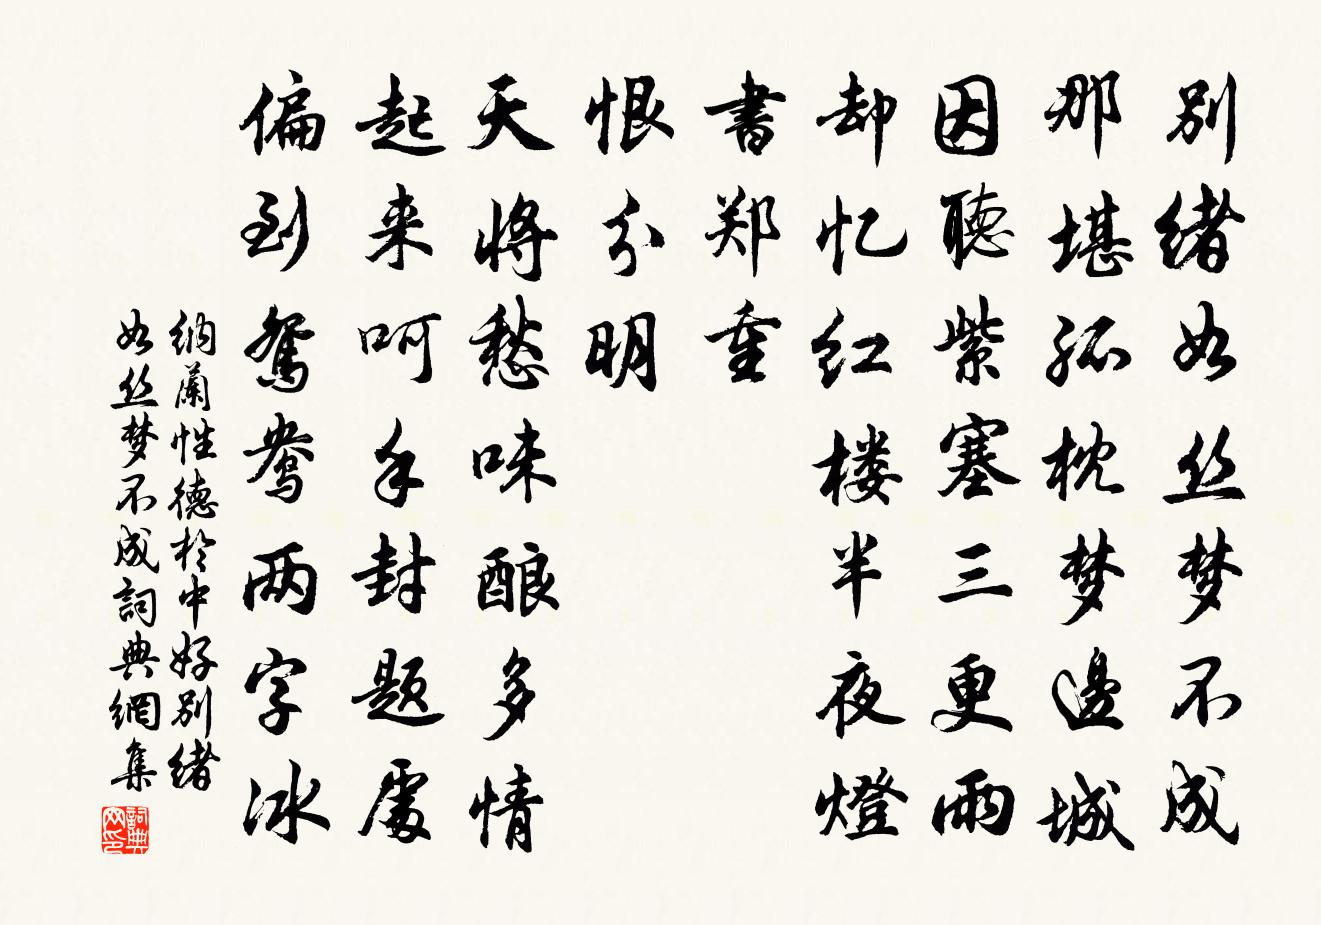 别绪如丝梦不成
那堪孤枕梦邊城
因聽紫塞三更雨
却忆红楼半夜燈
書郑重
恨分明
天将愁味酿多情
起来呵手封题處
偏到鸳鸯两字冰
纳蘭性德於中好别绪
如丝梦不成詞典網集
詞典
网印